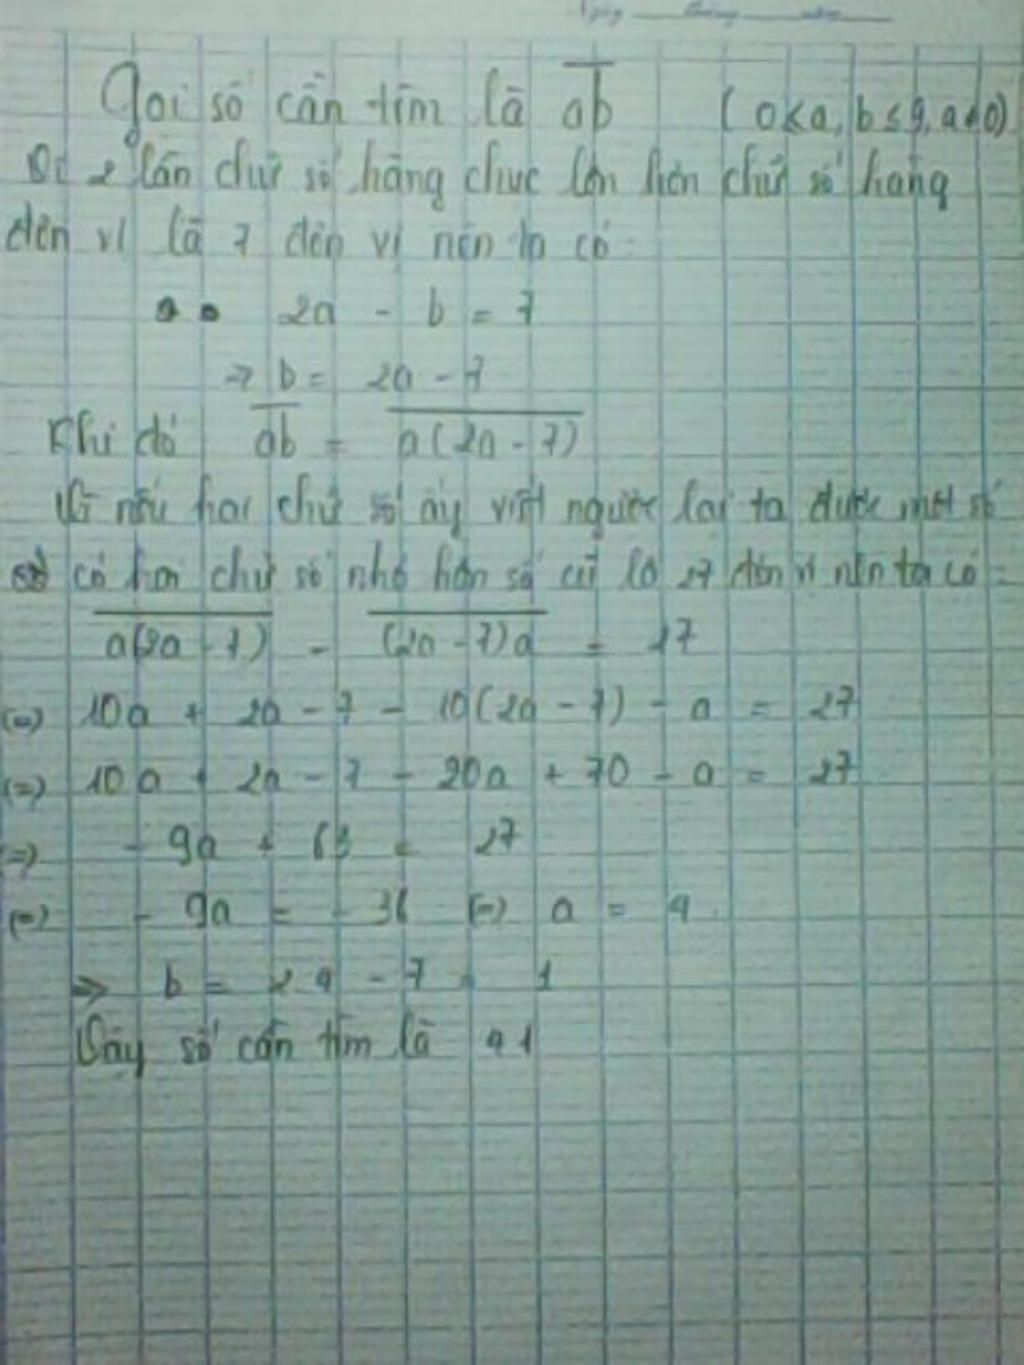 Ngày ... tháng ... năm ...
Gọi số cần tìm là ab (0 < a, b ≤ 9, a ≠ 0)
Vì 2 lần chữ số hàng chục lớn hơn chữ số hàng
đơn vị là 7 đơn vị nên ta có:
2a - b = 7
=> b = 2a - 7
Khi đó ab = a(2a - 7)
Vì nếu hai chữ số ấy viết ngược lại ta được một số
có hai chữ số nhỏ hơn số cũ là 27 đơn vị nên ta có:
a(2a - 7) - (2a - 7)a = 27
(=) 10a + 2a - 7 - 10(2a - 7) - a = 27
(=) 10a + 2a - 7 - 20a + 70 - a = 27
(=) - 9a + 63 = 27
(=) - 9a = - 36 (=) a = 4.
=> b = 2.4 - 7 = 1
Vậy số cần tìm là 41